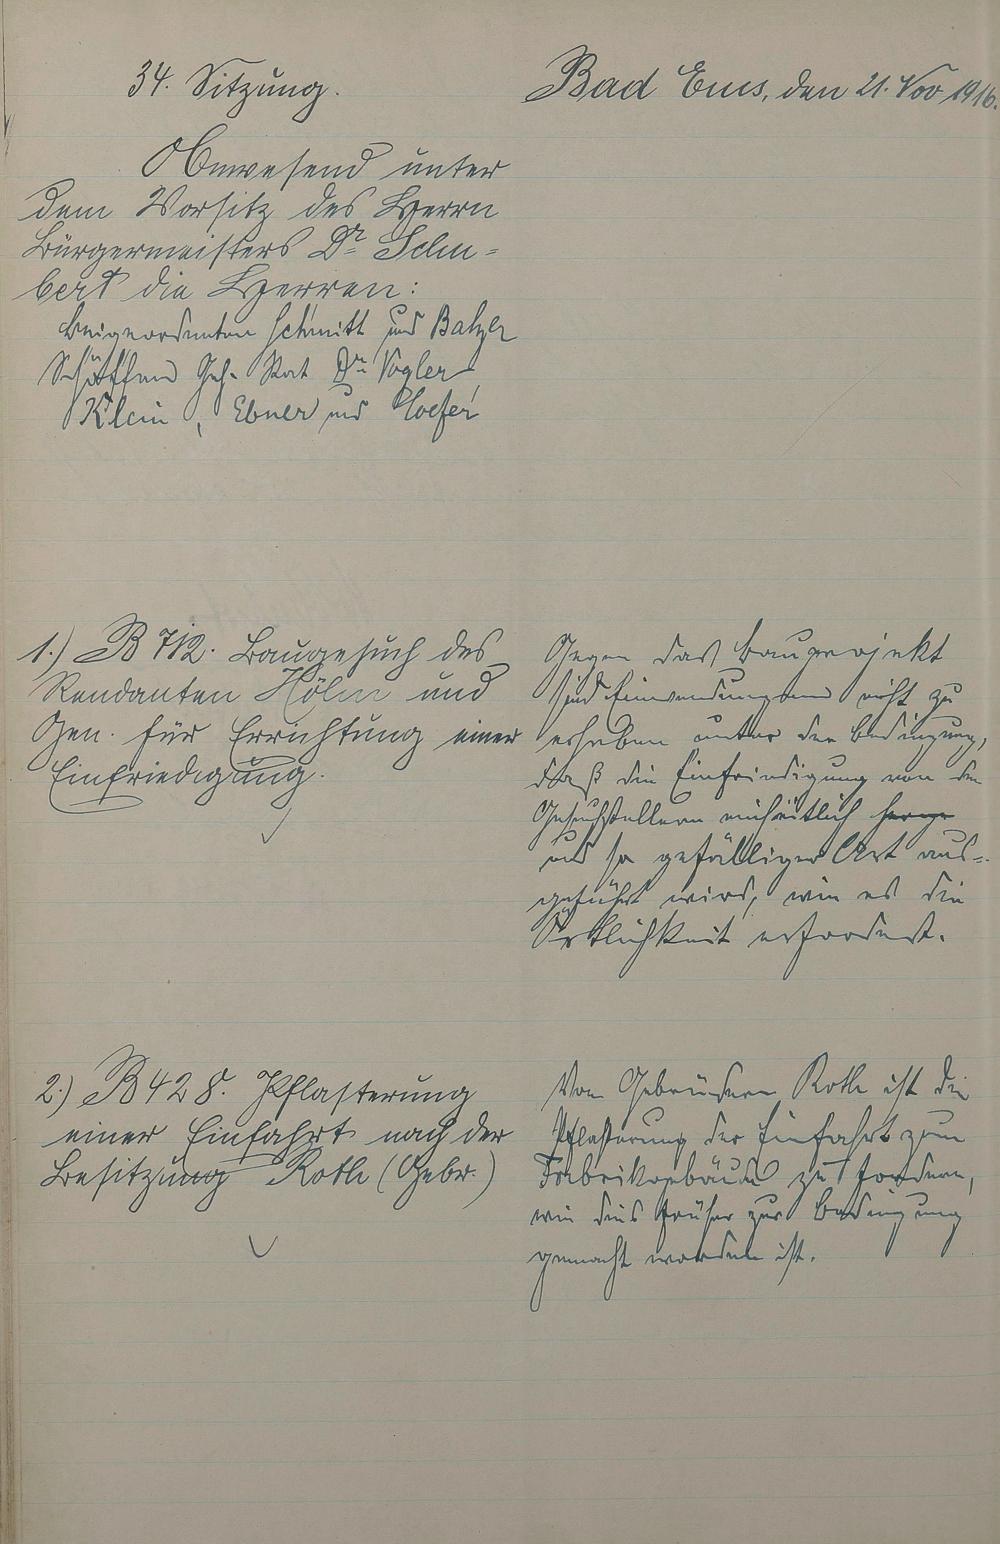 34. Sitzung.
Bad Ems, den 21. Nov 1916.
Anwesend unter
dem Vorsitz des Herrn
Bürgermeisters Dr. Schu-
bert die Herren:
Beigeordneten Schmitt und Balzer
Schöffen Geh. Rat Dr. Vogler
Klein, Ebner und Hoefer
1.) B 712. Baugesuch des
Rendanten Höhn und
Gen. für Errichtung einer
Einfriedigung.
Gegen das Bauprojekt
sind Einwendungen nicht zu
erheben unter der Bedingung,
daß die Einfriedigung von den
Gesuchstellern einheitlich herge
und in gefälliger Art aus-
geführt wird, wie es die
Örtlichkeit erfordert.
2.) B 428. Pflasterung
einer Einfahrt nach der
Besitzung Roth (Gebr.)
Von Gebrüdern Roth ist die
Pflasterung der Einfahrt zum
Fabrikgebäude zu fordern,
wie dies früher zur Bedingung
gemacht worden ist.